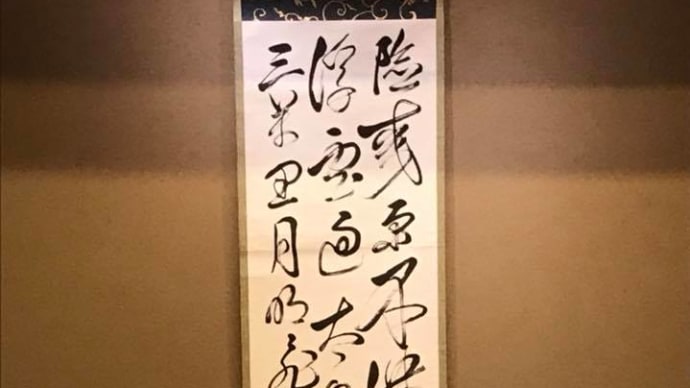 險夷原不滯
浮雲過太
三萬里月明飛